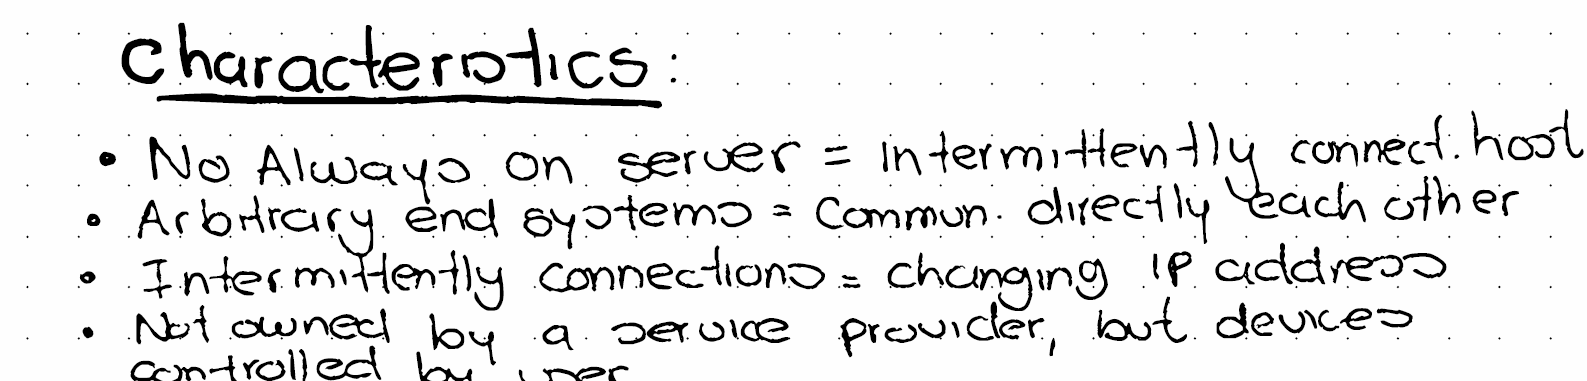 Characteristics:
• No Always on server = intermittently connect. host
• Arbitrary end systems = Commun. directly each other
• Intermittently connections = changing IP address
• Not owned by a service provider, but devices
controlled by user